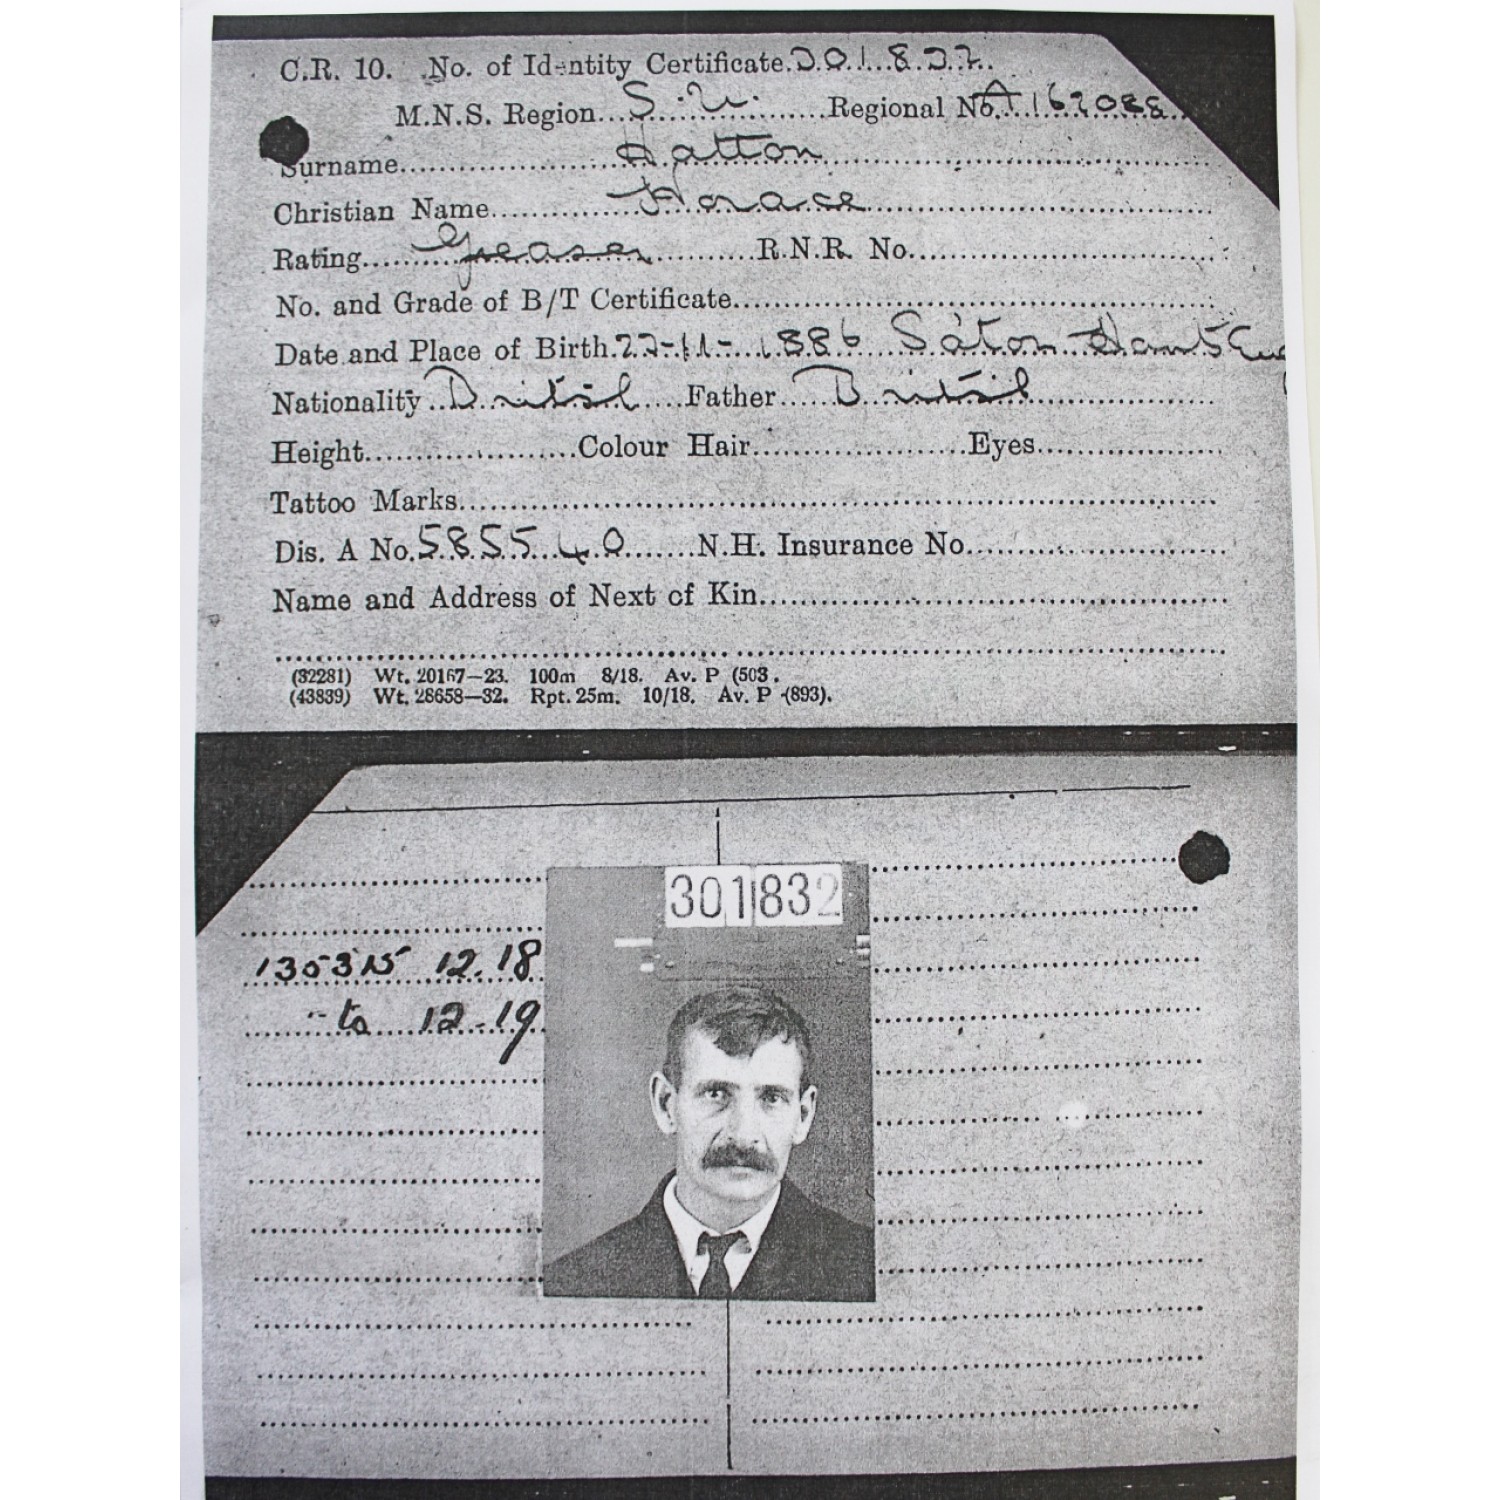 C.R. 10. No. of Identity Certificate. 301832.
M.N.S. Region... Regional No. A 162088
Surname... Hatton
Christian Name... Horace
Rating... Greaser R.N.R. No...
No. and Grade of B/T Certificate...
Date and Place of Birth. 22-11-1886 Hants Eng
Nationality... British Father... British
Height... Colour Hair... Eyes...
Tattoo Marks...
Dis. A No. 585540 N.H. Insurance No...
Name and Address of Next of Kin...
(32281) Wt. 20167—23. 100m 8/18. Av. P (503.
(43839) Wt. 28658—32. Rpt. 25m. 10/18. Av. P (893).
301832
12.18
to 12.19